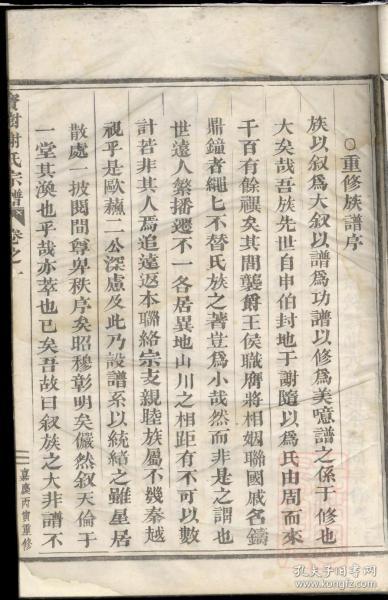 ○重修族譜序
族以叙爲大叙以譜爲功譜以修爲美噫譜之係于修也
大矣哉吾族先世自申伯封地于謝隨以爲氏由周而來
千百有餘禩矣其間襲爵王侯職膺將相姻聯國戚名鑄
鼎鐘者繩匕不替氏族之著豈爲小哉然而非是之謂也
世遠人繁播遷不一各居異地山川之相距有不可以數
計若非其人焉追遠返本聯絡宗支親睦族屬不幾秦越
視乎是歐蘇二公深慮及此乃設譜系以統緒之雖星居
散處一披閱間尊卑秩序矣昭穆彰明矣儼然叙天倫于
一堂其渙也乎哉亦萃也已矣吾故曰叙族之大非譜不
寶樹謝氏宗譜 卷之一
嘉慶丙寅重修
孔夫子旧书网